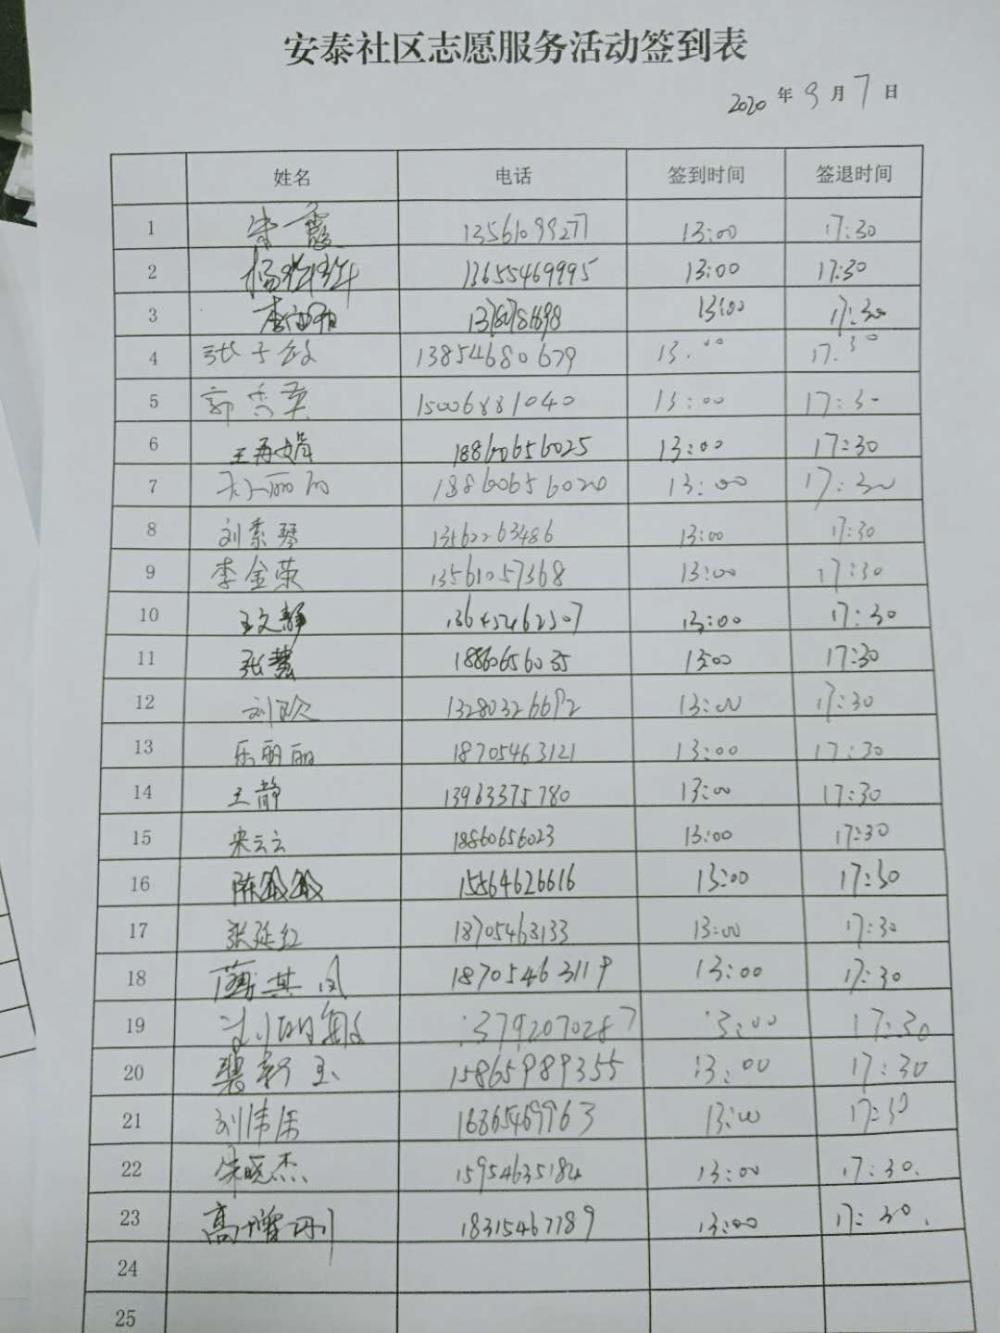 安泰社区志愿服务活动签到表
2020 年 9 月 7 日
姓名 电话 签到时间 签退时间
1 朱霞 13561099277 13:00 17:30
2 杨 13655469995 13:00 17:30
3 李 13:00 17:30
4 张 13854680679 13:00 17:30
5 郭秀英 15006881040 13:00 17:30
6 王再娟 18860656025 13:00 17:30
7 丽 18860656020 13:00 17:30
8 刘素琴 13562263486 13:00 17:30
9 李金荣 13561057368 13:00 17:30
10 王文静 13645462507 13:00 17:30
11 张慧 18860656035 13:00 17:30
12 刘欣 13280326692 13:00 17:30
13 乐丽丽 18705463121 13:00 17:30
14 王静 13963375780 13:00 17:30
15 宋云云 18860656023 13:00 17:30
16 陈 15864626616 13:00 17:30
17 张延红 18705463133 13:00 17:30
18 其凤 18705463119 13:00 17:30
19 刘明毅 13792070287 13:00 17:30
20 裴新玉 15865989355 13:00 17:30
21 刘伟 16865469963 13:00 17:30
22 朱晓杰 15954635184 13:00 17:30.
23 高增刚 18315467789 13:00 17:30.
24
25